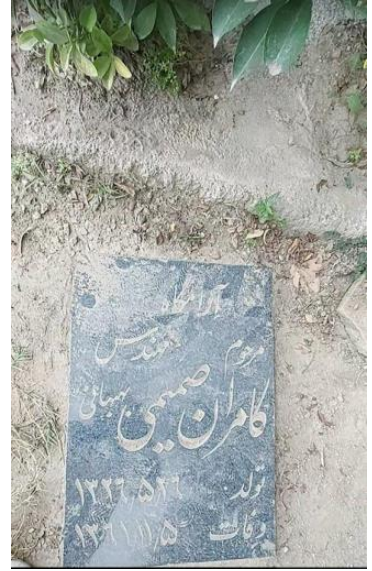 آرامگاه
مرحوم مهندس
کامران صمیمی بهبهانی
تولد ۱۳۲۶٫۵٫۲۶
وفات ۱۳۶۱٫۱۱٫۵